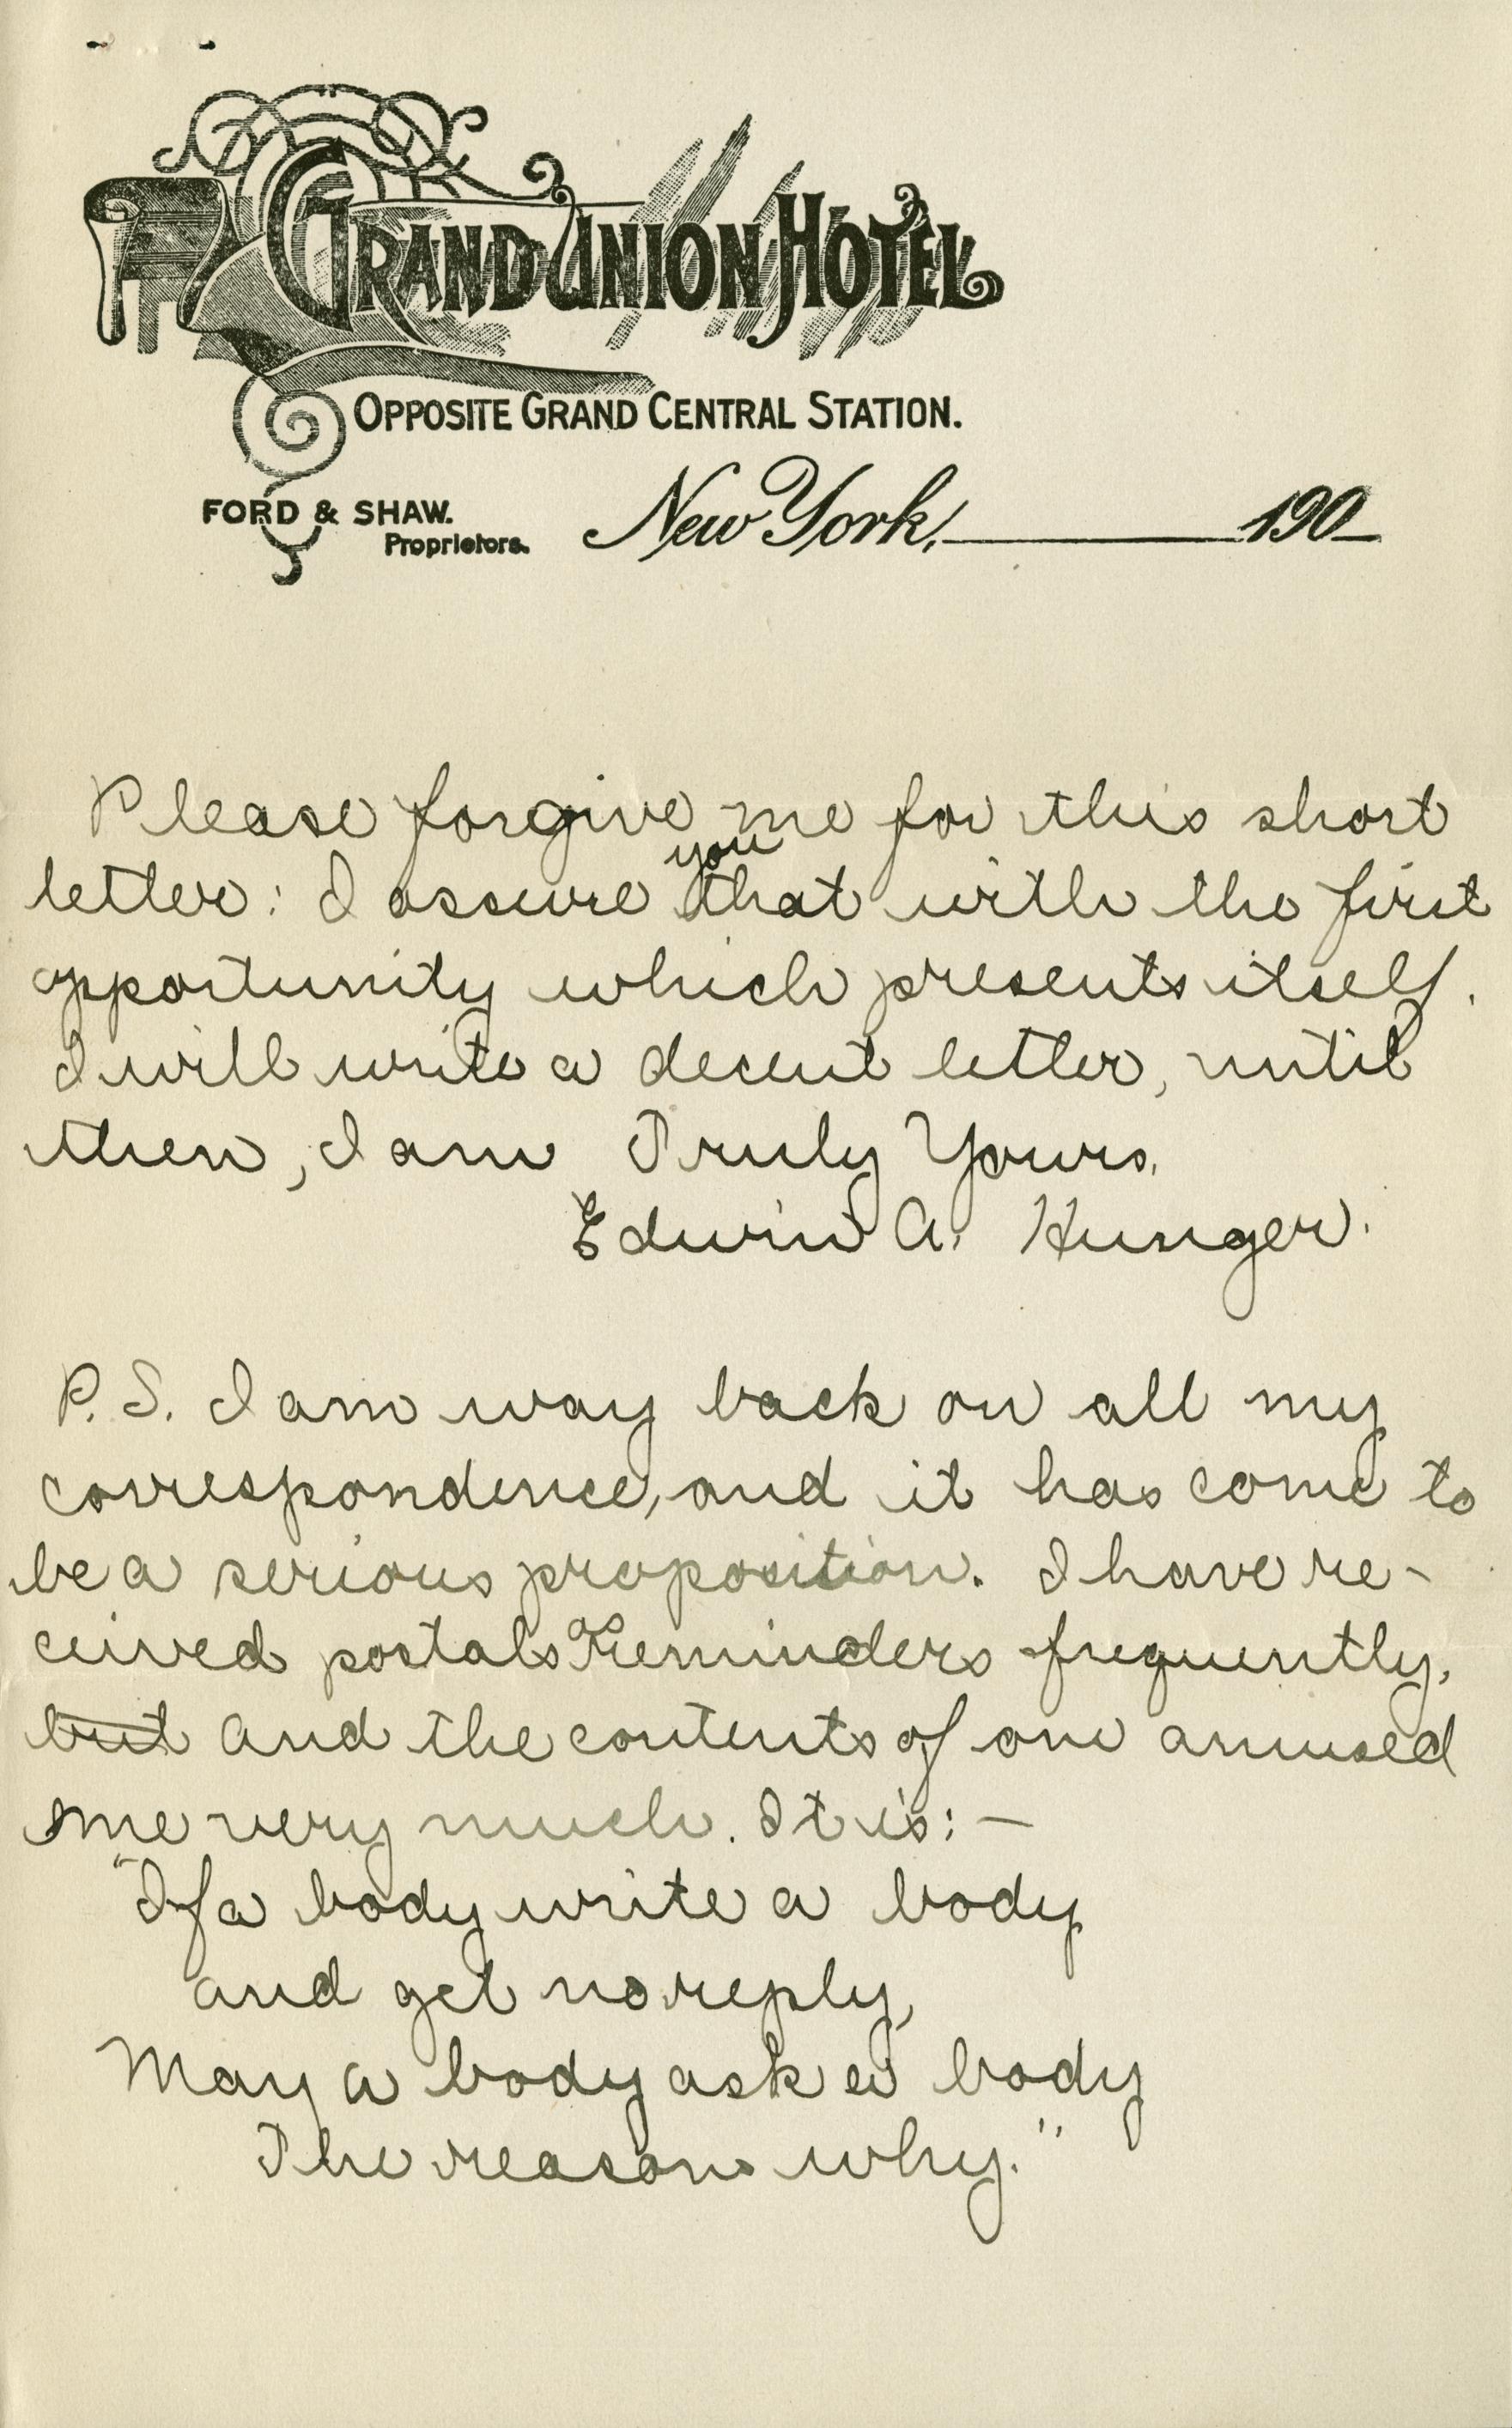 GRAND UNION HOTEL
OPPOSITE GRAND CENTRAL STATION.
FORD & SHAW.
Proprietors.
New York, 190
Please forgive me for this short
letter: I assure you that with the first
opportunity which presents itself.
I will write a decent letter, until
then, I am Truly Yours,
Edwin A. Hunger.
P.S. I am way back on all my
correspondence, and it has come to
be a serious proposition. I have re-
ceived postals as reminders frequently,
but and the contents of one amused
me very much. It is:—
"If a body write a body
and get no reply,
May a body ask a body
The reason why."